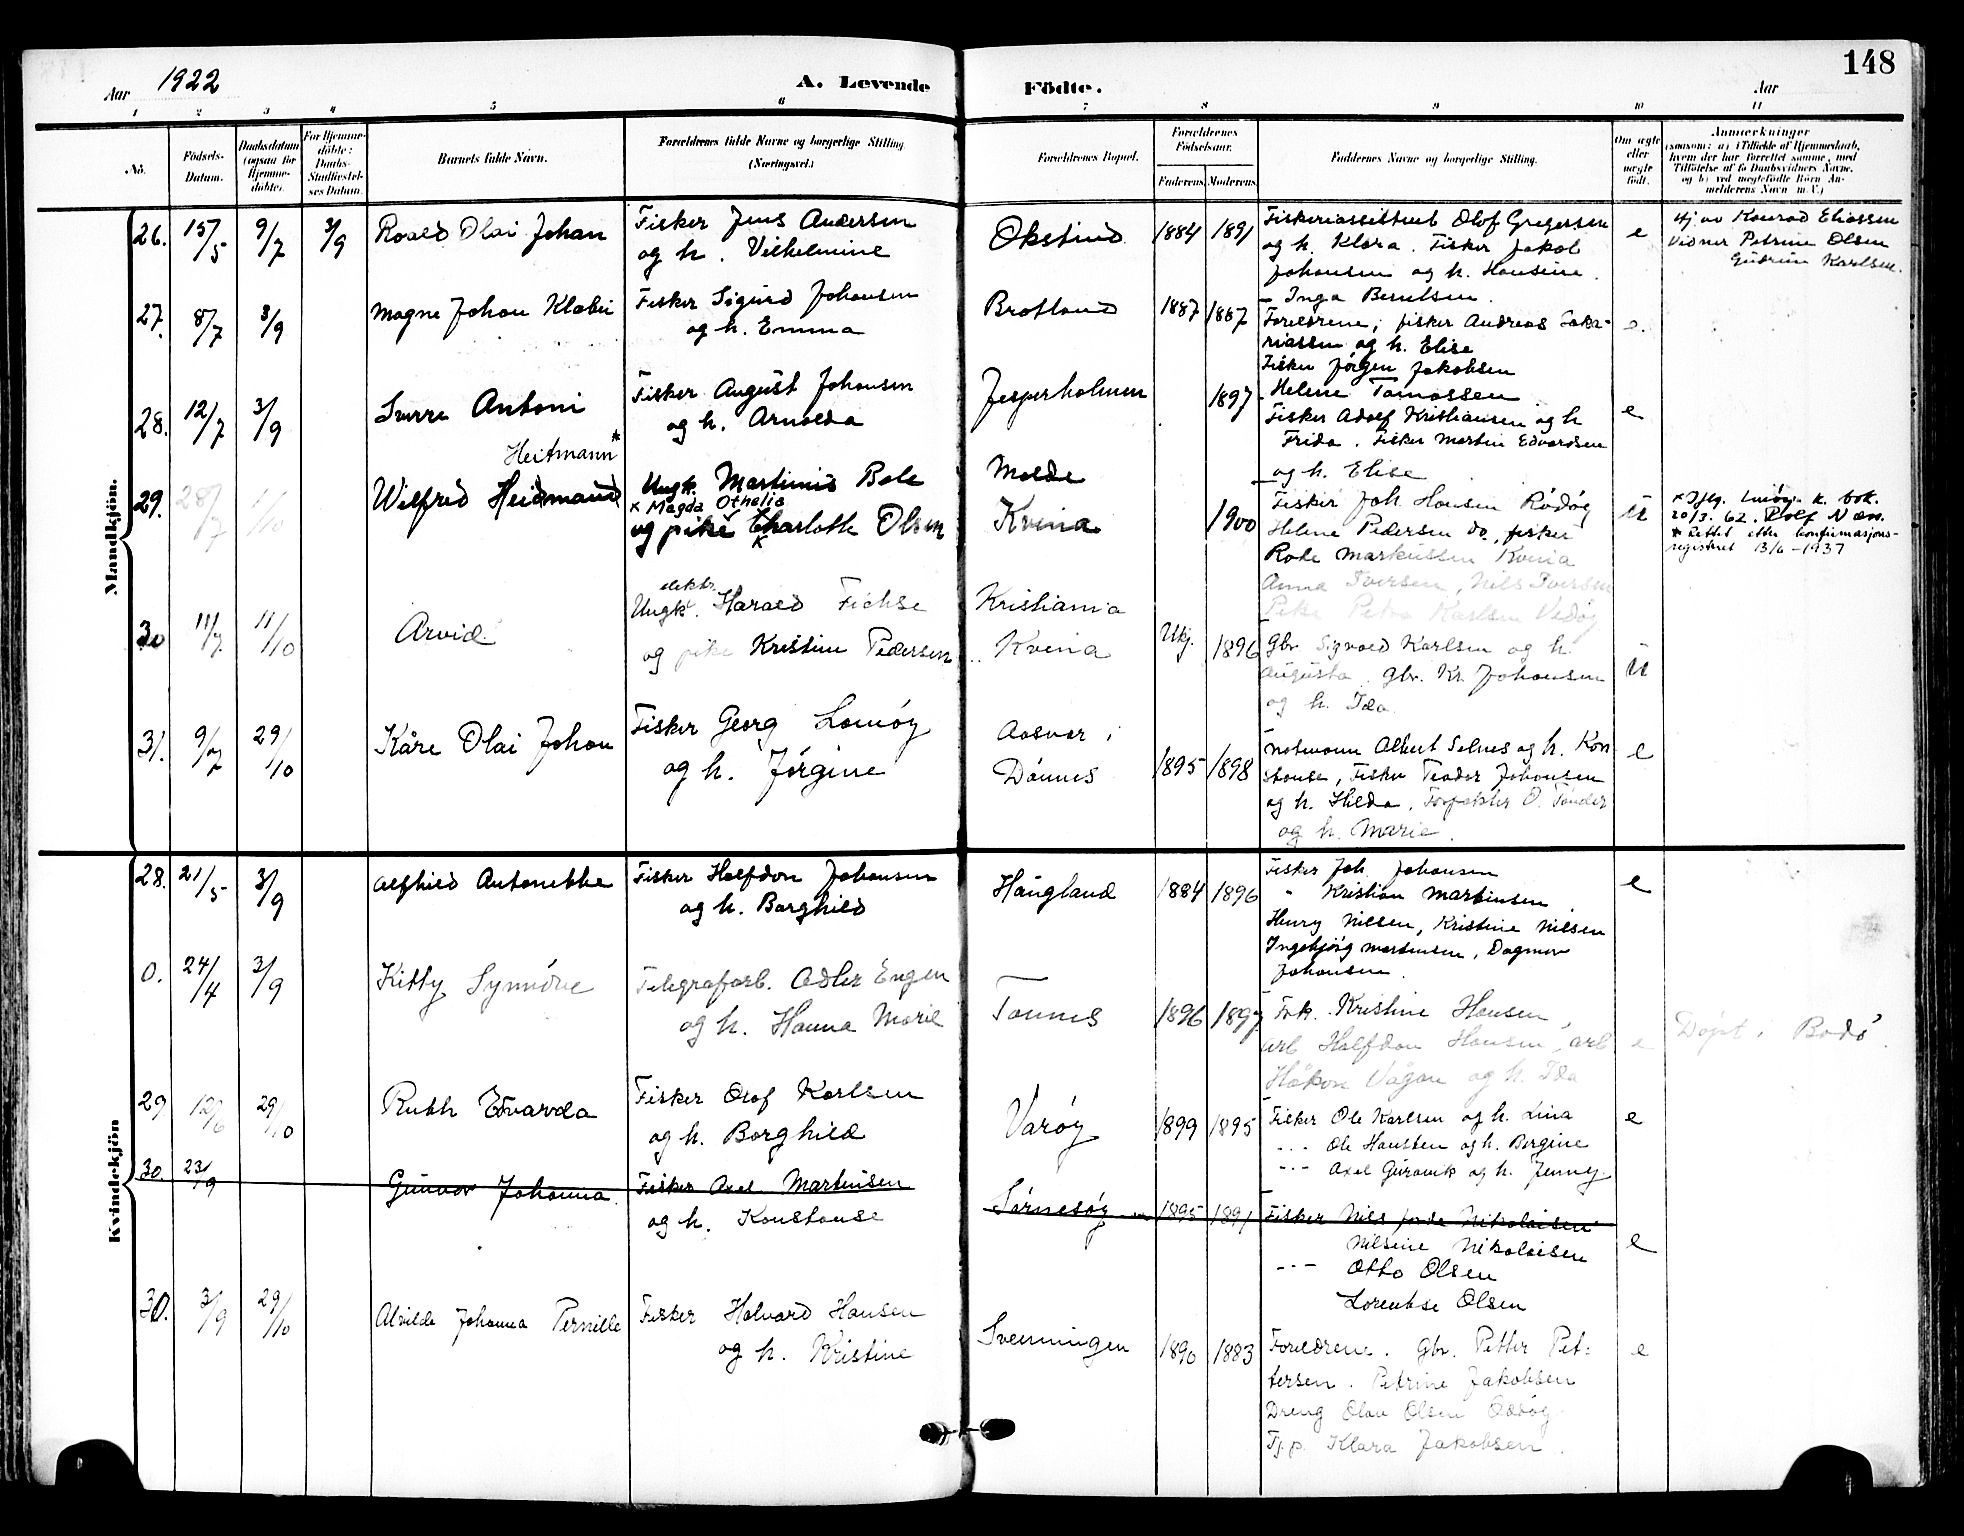 148
Aar 1922 A. Levende Födte. Aar
1 2 3 4 5 6 7 8 9 10 11
No.
Födsels-
Datum.
Daabsdatum
(ogsaa for
Hjemme-
döbte).
For Hjemme-
döbte:
Daabs-
Stadfæstel-
ses Datum.
Barnets fulde Navn.
Forældrenes fulde Navne og borgerlige Stilling.
(Næringsvei.)
Forældrenes Bopæl.
Forældrenes
Födselsaar.
Faderens. Moderens.
Faddernes Navne og borgerlige Stilling.
Om ægte
eller
uægte
födt.
Anmærkninger
(saasom: a) i Tilfælde af Hjemmedaab,
hvem der har forrettet samme, med
Tilföielse af to Daabsvidners Navne,
og b) ved uægtefödte Börn An-
melderens Navn m. V.)
Mandkjön.
26. 15/5 9/7 3/9 Roald Olai Johan
Fisker Jens Andersen
og h. Vilhelmine
Økstind 1884 1891
Fiskeriassistent Olof Gregersen
og h. Klara. Fisker Jakob
Johansen og h. Hansine.
e
Hj. av Konrad Eliassen
Vidner Petrine Olsen
Gudrun Karlsen.
27. 8/7 3/9 Magne Johan Klæbu
Fisker Sigurd Johansen
og h. Emma
Brotland 1887 1887
Inga Berntsen.
Foreldrene; fisker Andreas Saka-
riassen og h. Elise
Fisker Jørgen Jakobsen
e.
28. 12/7 3/9 Sverre Antoni
Fisker August Johansen
og h. Arnolda
Jesperholmen 1897
Helene Tomassen
Fisker Adolf Kristiansen og h
Frida. Fisker Martin Edvardsen
og h. Elise
e
29. 28/7 1/10 Heitmann*
Wilfred Heidmand
Ungk. Martinus Bole
x Magda Othelia
og pike Charlotte Olsen
x
Molde
Kvina
1900
Fisker Joh. Hansen Rødøy
Helene Pedersen do, fisker
Rode Markussen Kvina
Anna Iversen, Nils Iversen
Pike Petra Karlsen Vedøy
U
x Iflg. Lurøy k. bok.
20/3. 62. Rolf Næss.
* Rettet etter konfirmasjons-
registret 13/6-1937
30 11/7. 11/10 Arvid.
Ungk. Harald Fichse
og pike Kristine Pedersen
Kristiania
Kvina
Ukj. 1896
Gbr. Sigvald Karlsen og h.
Augusta. gbr. Kr. Johansen
og h. Ida.
U
31. 9/7 29/10 Kåre Olai Johan
Fisker Georg Lomøy
og h. Jørgine
Aasvar i
Dønnes
1895 1898
Notemann Albert Selnes og h. Kon
stanse, Fisker Teodor Johansen
og h. Hilda. Forpakter O. Tønder
og h. Marie.
e
Kvindekjön
28. 21/5 3/9 Alfhild Antonette
Fisker Halfdan Johansen
og h. Borghild
Haugland 1884 1896
Fisker Joh. Johansen
" Kristian Martinsen
Henry Nilsen, Kristine Nilsen
Ingebjørg Martinsen, Dagmar
Johansen.
e
0. 24/4 3/9 Kitty Synnöve
Telegrafarb. Adler Engen
og h. Hanna Marie
Tonnes 1896 1897
Frk. Kristine Hansen,
arb Halfdan Hansen, arb
Håkon Vågan og h. Ida
e
Döpt i Bodö.
29 12/6 29/10 Ruth Edvarda
Fisker Olof Karlsen
og h. Borghild
Varøy 1899 1895
Fisker Ole Karlsen og h. Lina
--- Ole Hansten og h. Bergine
--- Axel Gurovik og h. Jenny.
e
30. 23/9 Gunvor Johanna.
Fisker Axel Martinsen
og h. Konstanse
Sørnesøy 1895 1891
Fisker Nils Nikolaisen
Nilsine Nikolaisen
--- Otto Olsen
Lorentse Olsen
e
30. 3/9 29/10 Alvilde Johanna Pernille
Fisker Halvard Hansen
og h. Kristine
Svenningen 1890 1883
Foreldrene. Gbr. Petter Pet-
tersen. Petrine Jakobsen
Dreng Olav Olsen
Tj.p. Klara Jakobsen.
e